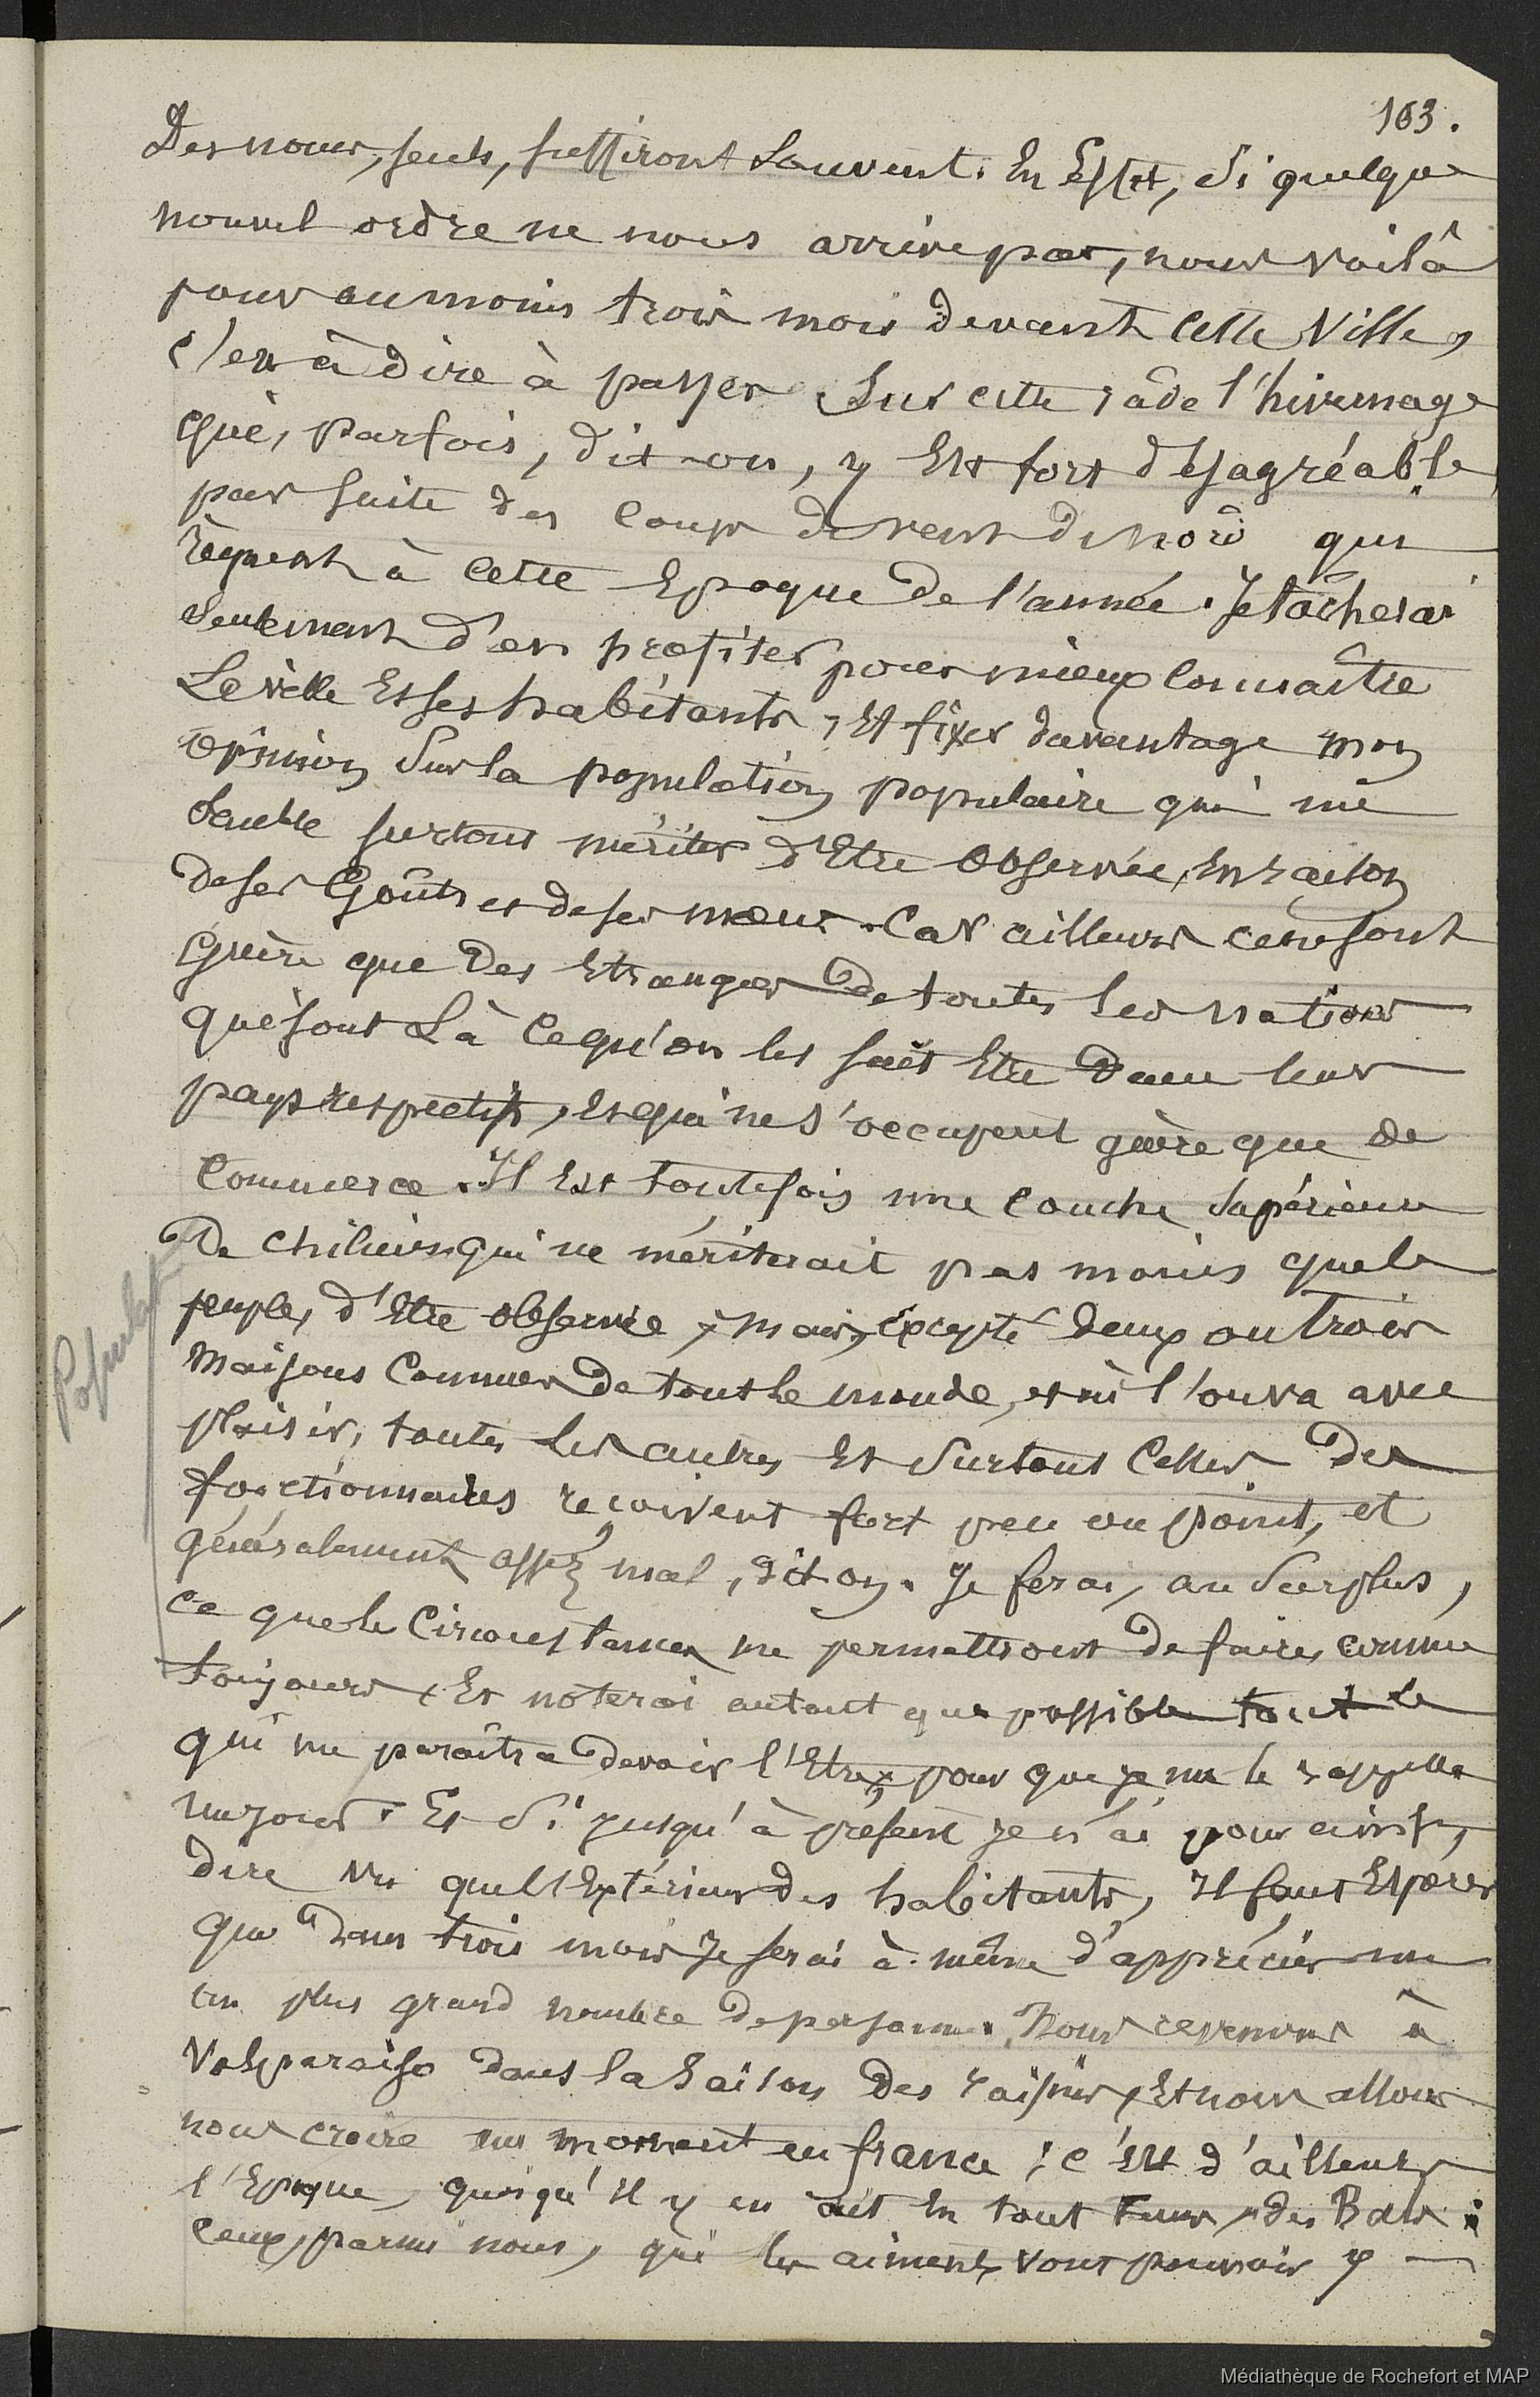 163.
Des nous, seuls, suffiront souvent. En Effet, si quelque
nouvel ordre ne nous arrive pas, nous voilà
pour au moins trois mois devant cette Ville,
c'est à dire à passer sur cette rade l'hivernage
qui, parfois, dit-on, y Est fort désagréable
par suite des coups de vent de nord qui
règnent à cette Epoque de l'année. Je tâcherai
seulement d'en profiter pour mieux connaître
La ville Et ses habitants, Et fixer davantage mon
opinion sur la population populaire qui me
semble surtout mériter d'Etre observée, En raison
de ses Goûts et de ses mœurs. Car ailleurs ce ne sont
guère que des Etrangers de toutes les nations
qui sont Là ce qu'on les sait Etre dans leur
pays respectifs, Et qui ne s'occupent guère que de
commerce. Il Est toutefois une couche supérieure
De chiliens qui ne mériterait pas moins que le
peuple, d'Etre observée; mais, Excepté deux ou trois
Maisons connues de tout le monde, et où l'on va avec
plaisir, toutes les autres Et surtout celles des
fonctionnaires reçoivent fort peu ou point, et
généralement assez mal, dit on. Je ferai, au surplus,
ce que les circonstances me permettront de faire, comme
toujours, Et noterai autant que possible tout ce
qui me paraîtra devoir l'Etre, pour que je me le rappelle
un jour. Et si jusqu'à présent je n'ai pour ainsi
dire vu que l'Extérieur des habitants, Il faut Espérer
que dans trois mois Je serai à même d'apprécier
un plus grand nombre de personnes. Nous revenons à
Valparaiso dans la saison des raisins, Et nous allons
nous croire un moment en france; c'est d'ailleurs
l'Epoque, quoiqu'il y en ait En tout tems, des Bals:
ceux, parmi nous, qui les aiment, vont pouvoir y
Populat.
Médiathèque de Rochefort et MAP